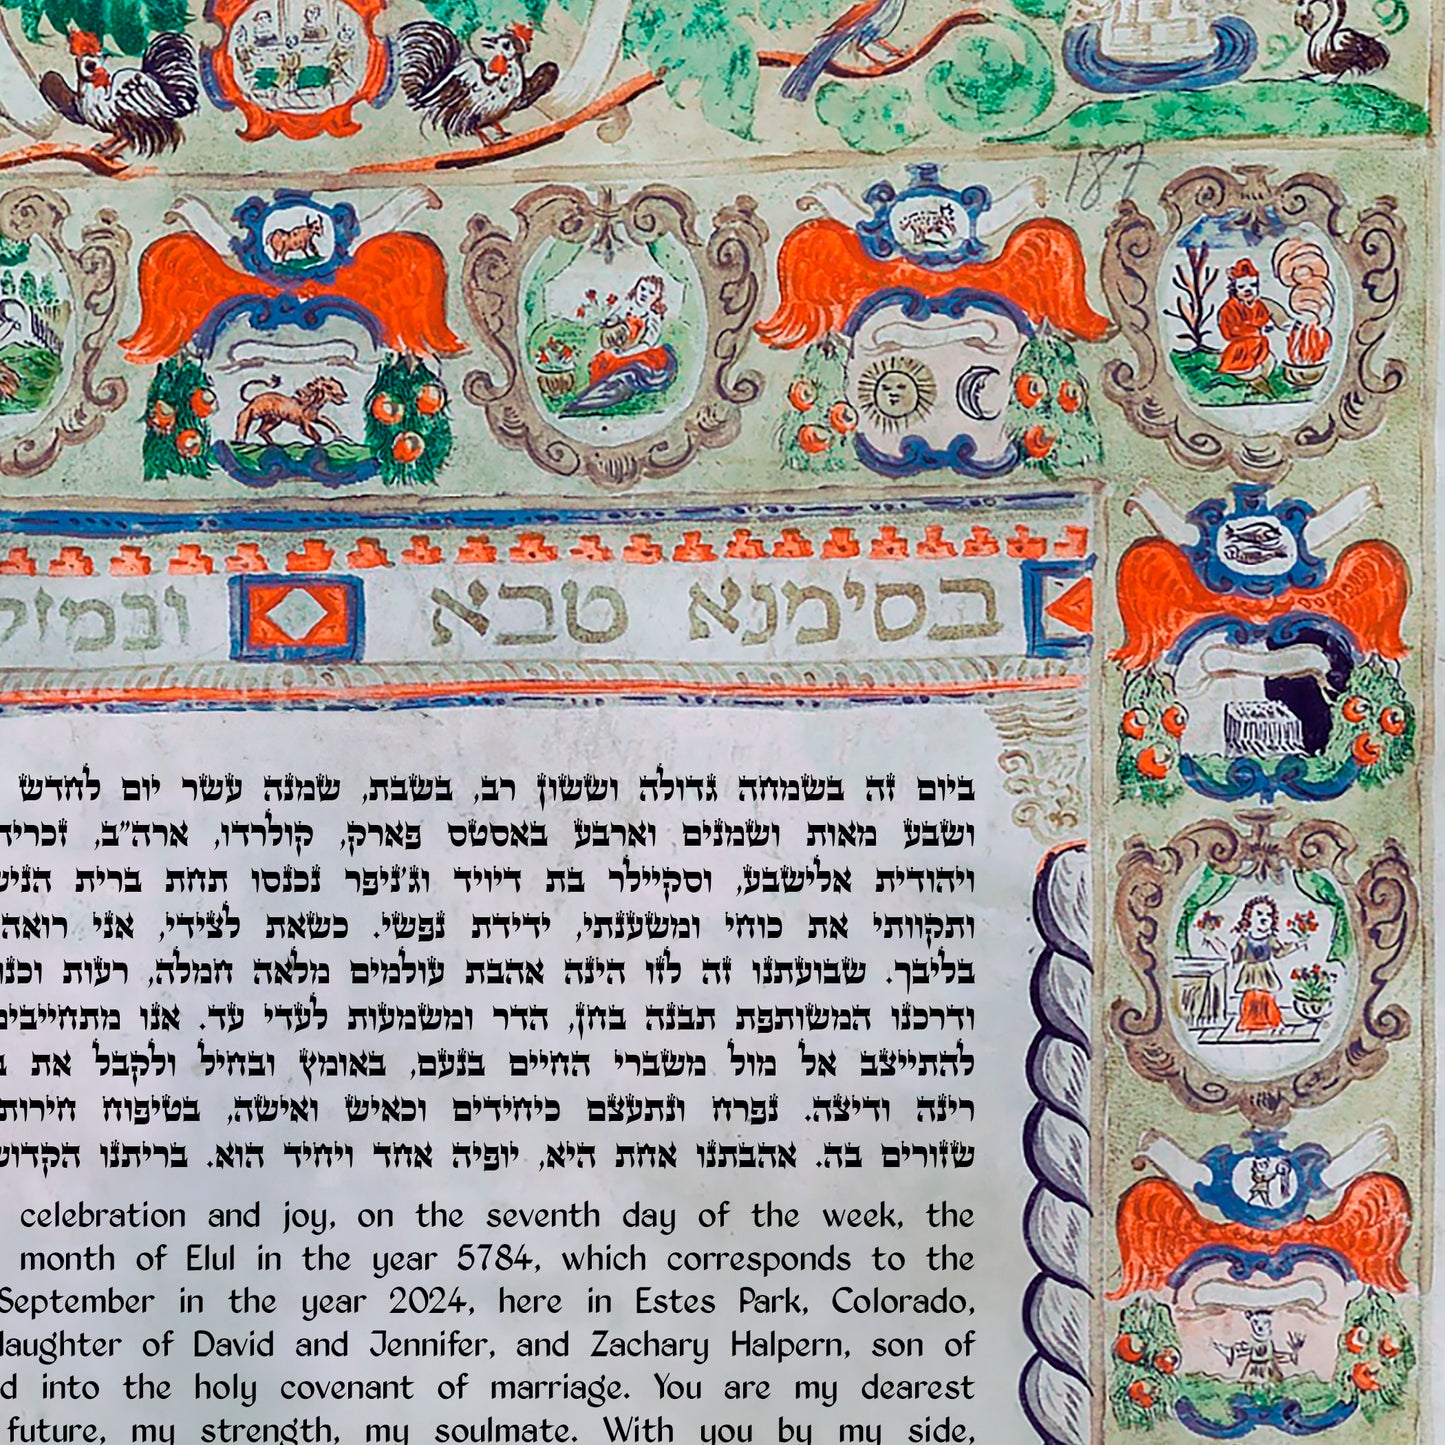 187
בסימנא טבא
ובמזל
ביום זה בשמחה גדולה וששון רב, בשבת, שמנה עשר יום לחדש
ושבע מאות ושמנים וארבע באסטס פארק, קולרדו, ארה״ב, זכריה
ויהודית אלישבע, וסקיילר בת דיויד וג׳ניפר נכנסו תחת ברית
ותקוותי את כוחי ומשענתי, ידידת נפשי. כשאת לצידי, אני רואה
בליבך. שבועתנו זה לזו הינה אהבת עולמים מלאה חמלה, רעות
ודרכנו המשותפת תבנה בחן, הדר ומשמעות לעדי עד. אנו
להתייצב אל מול משברי החיים בנעם, באומץ ובחיל ולקבל את
רינה ודיצה. נפרח ונתעצם כיחידים וכאיש ואישה, בטיפוח
שזורים בה. אהבתנו אחת היא, יופיה אחד ויחיד הוא. בריתנו
celebration and joy, on the seventh day of the week, the
month of Elul in the year 5784, which corresponds to the
September in the year 2024, here in Estes Park, Colorado,
daughter of David and Jennifer, and Zachary Halpern, son of
into the holy covenant of marriage. You are my dearest
future, my strength, my soulmate. With you by my side,